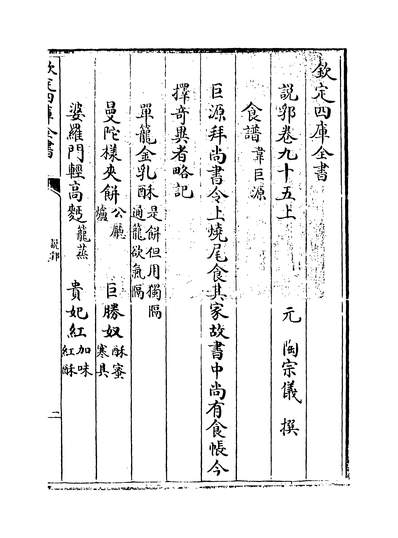 欽定四庫全書
說郛卷九十五上
元 陶宗儀 撰
食譜 韋巨源
巨源拜尚書令上燒尾食其家故書中尚有食帳今
擇奇異者略記
單籠金乳酥 是餅但用獨隔通籠欲氣隔
曼陀樣夾餅 公廳爐 巨勝奴 酥蜜寒具
婆羅門輕高麫 籠蒸 貴妃紅 加味紅酥
欽定四庫全書
說郛
二